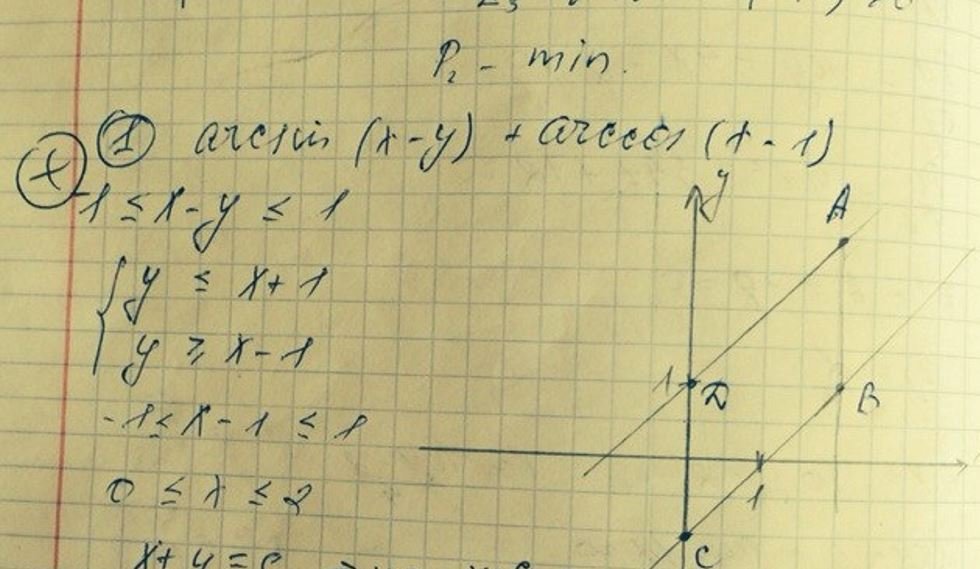 P₂ - min.
① arcsin (x-y) + arccos (x-1)
+
-1 ≤ x-y ≤ 1
{ y ≤ x+1
y ≥ x-1
-1 ≤ x-1 ≤ 1
0 ≤ x ≤ 2
y
A
1
D
B
1
C